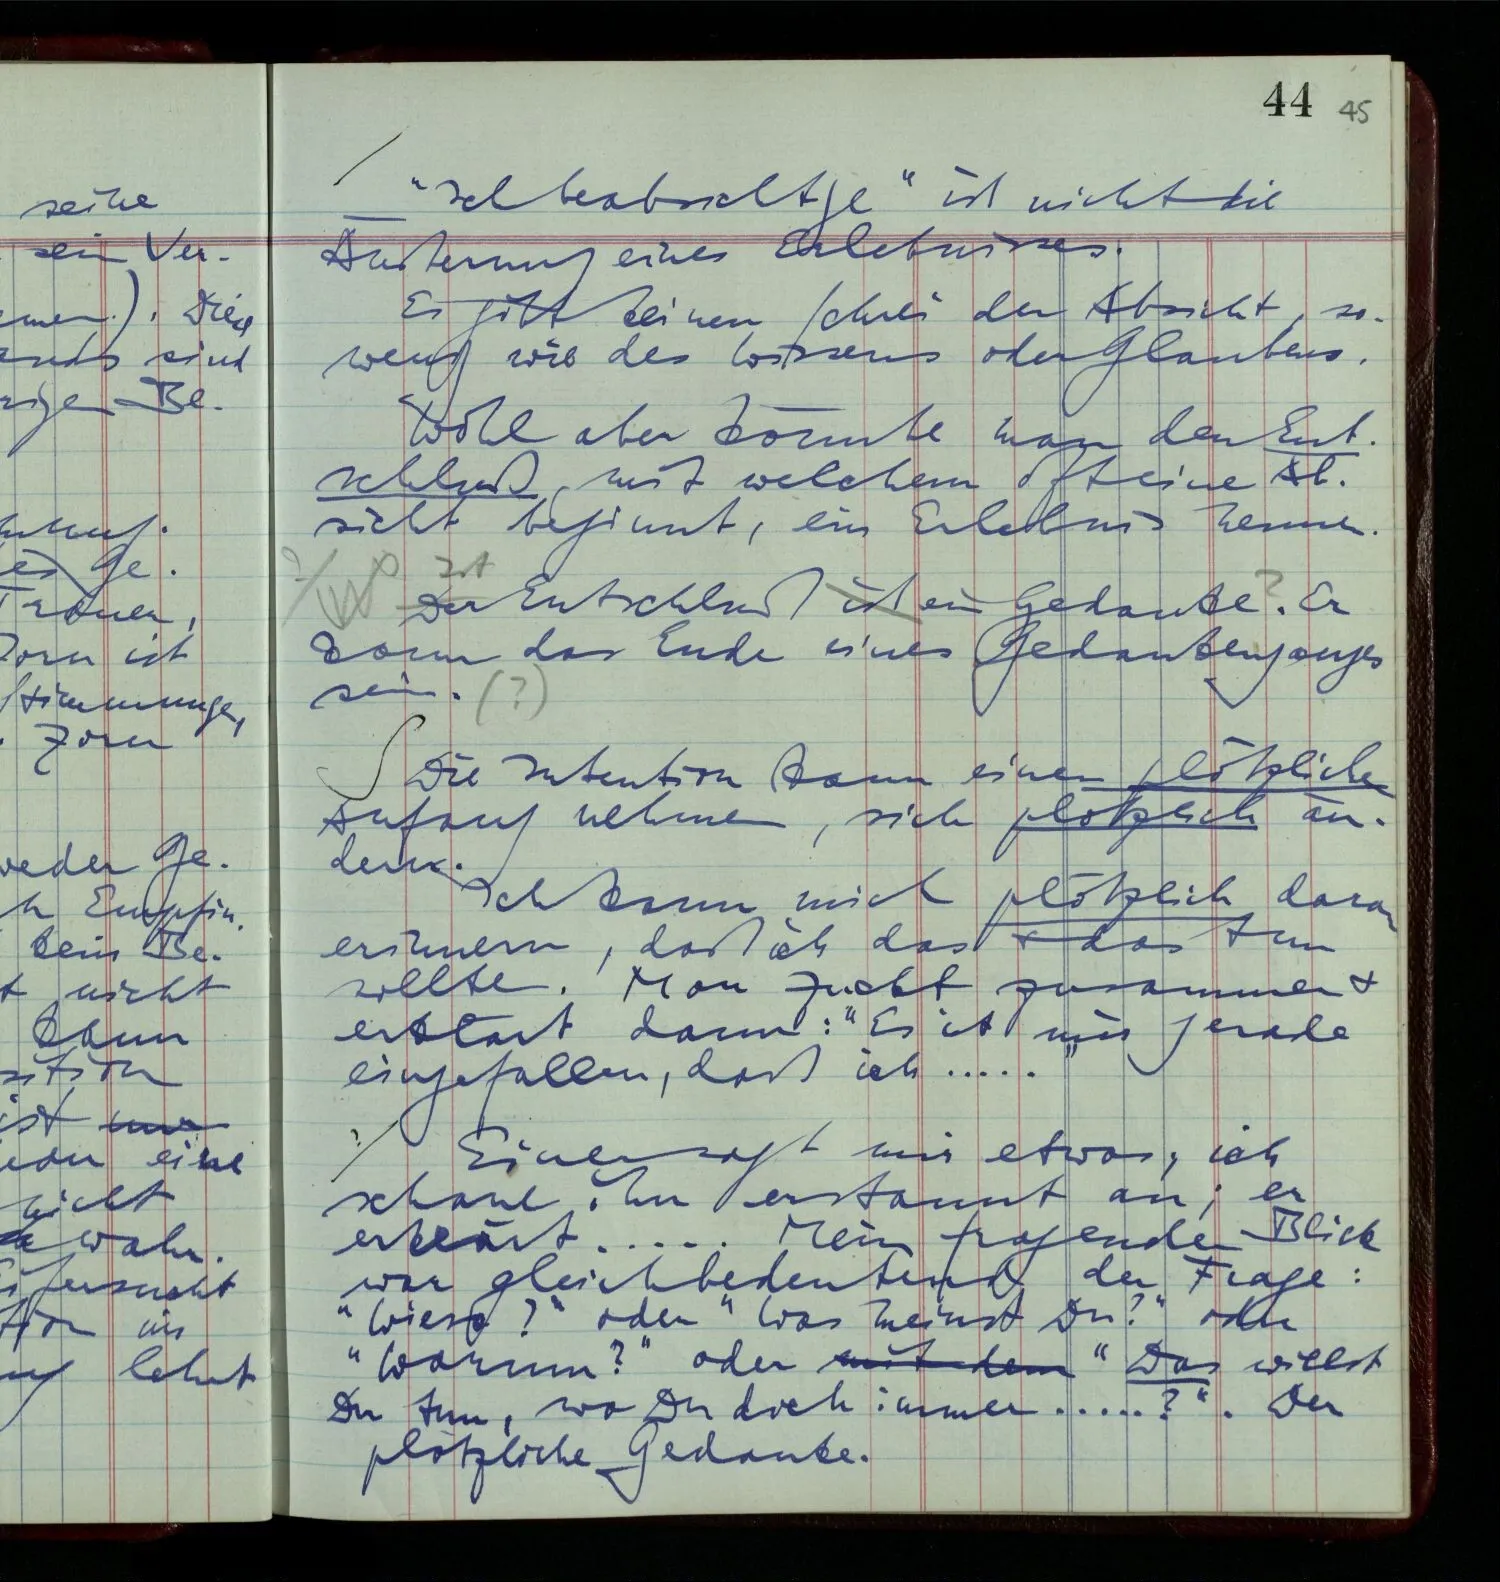 seine
sein Ver-
). Diese
sind
Be-
Ge-
Zorn ist
Stimmungen,
Zorn
weder Ge-
Empfin-
kein Be-
nicht
kann
ist nur
eine
nicht
wahr.
Eifersucht
im
lehnt
44 45
/ "Ich beabsichtige" ist nicht die
Äußerung eines Erlebnisses.
Es gibt keinen Schrei der Absicht, so-
wenig wie des Wissens oder Glaubens.
Wohl aber könnte man den Ent-
schluß, mit welchem oft eine Ab-
sicht beginnt, ein Erlebnis nennen.
?/ Ist
Der Entschluß ist ein Gedanke?. Er
kann das Ende eines Gedankenganges
sein. (?)
∫ Die Intention kann einen plötzlichen
Anfang nehmen, sich plötzlich än-
dern.
Ich kann mich plötzlich daran
erinnern, daß ich das + das tun
sollte. Man zuckt zusammen +
erklärt dann: "Es ist mir gerade
eingefallen, daß ich ....."
?/ Einer sagt mir etwas, ich
schaue ihn erstaunt an; er
erklärt ..... Mein fragender Blick
war gleichbedeutend der Frage:
"Wieso?" oder "Was meinst Du?" oder
"Warum?" oder mit dem "Das willst
Du tun, wo Du doch immer .....?". Der
plötzliche Gedanke.